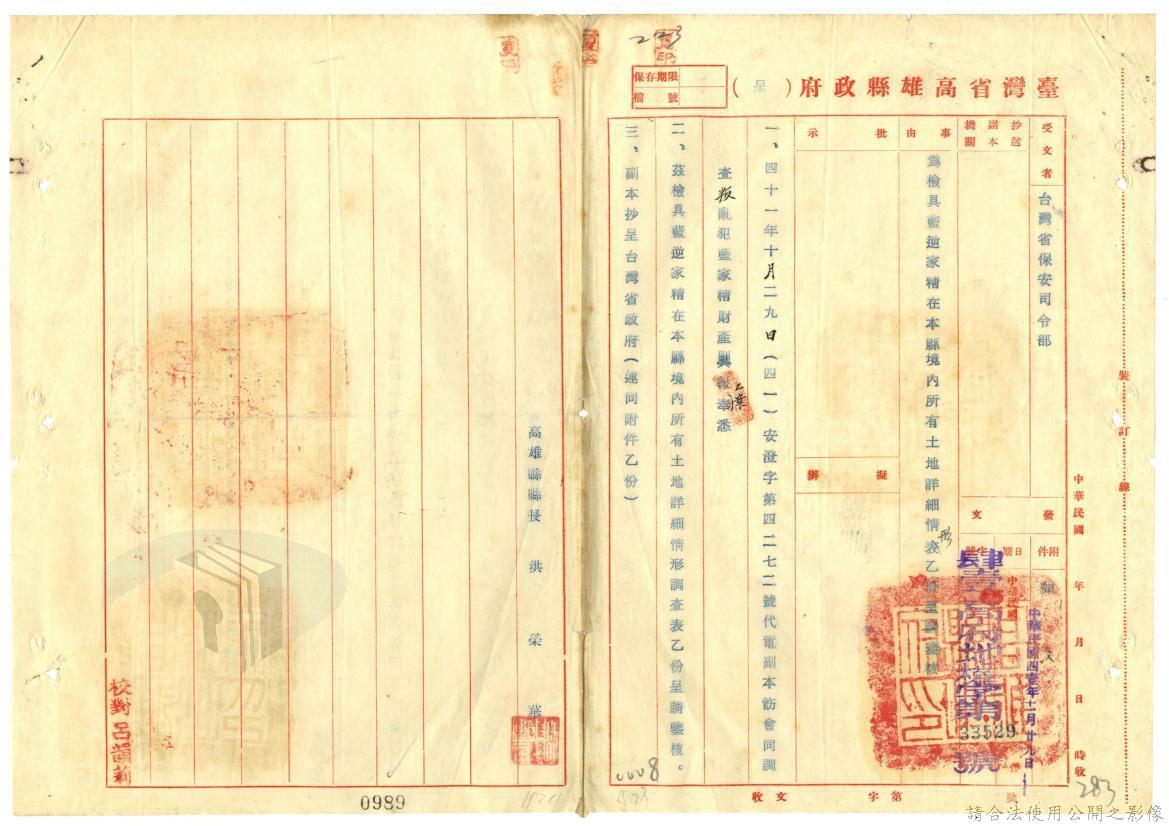 臺灣省高雄縣政府(呈)
保存期限
檔號
223
受文者
台灣省保安司令部
抄送副本機關
事由
為檢具藍逆家精在本縣境內所有土地詳細情形表乙份呈請鑒核
批示
擬辦
發文
附件
如文
日期
中華民國四壹年十一月廿九日
字號
肆壹高府地權字第33529號
一、四十一年十月二九日(四一)安澄字第四二七二號代電副本飭會同調
查叛亂犯藍家精財產具報奉悉
二、茲檢具藍逆家精在本縣境內所有土地詳細情形調查表乙份呈請鑒核。
三、副本抄呈台灣省政府(連同附件乙份)
高雄縣縣長 洪榮華
校對 呂韻莉
裝訂線
中華民國 年 月 日 時收
收文 字第 號
283
0008
0989
請合法使用公開之影像